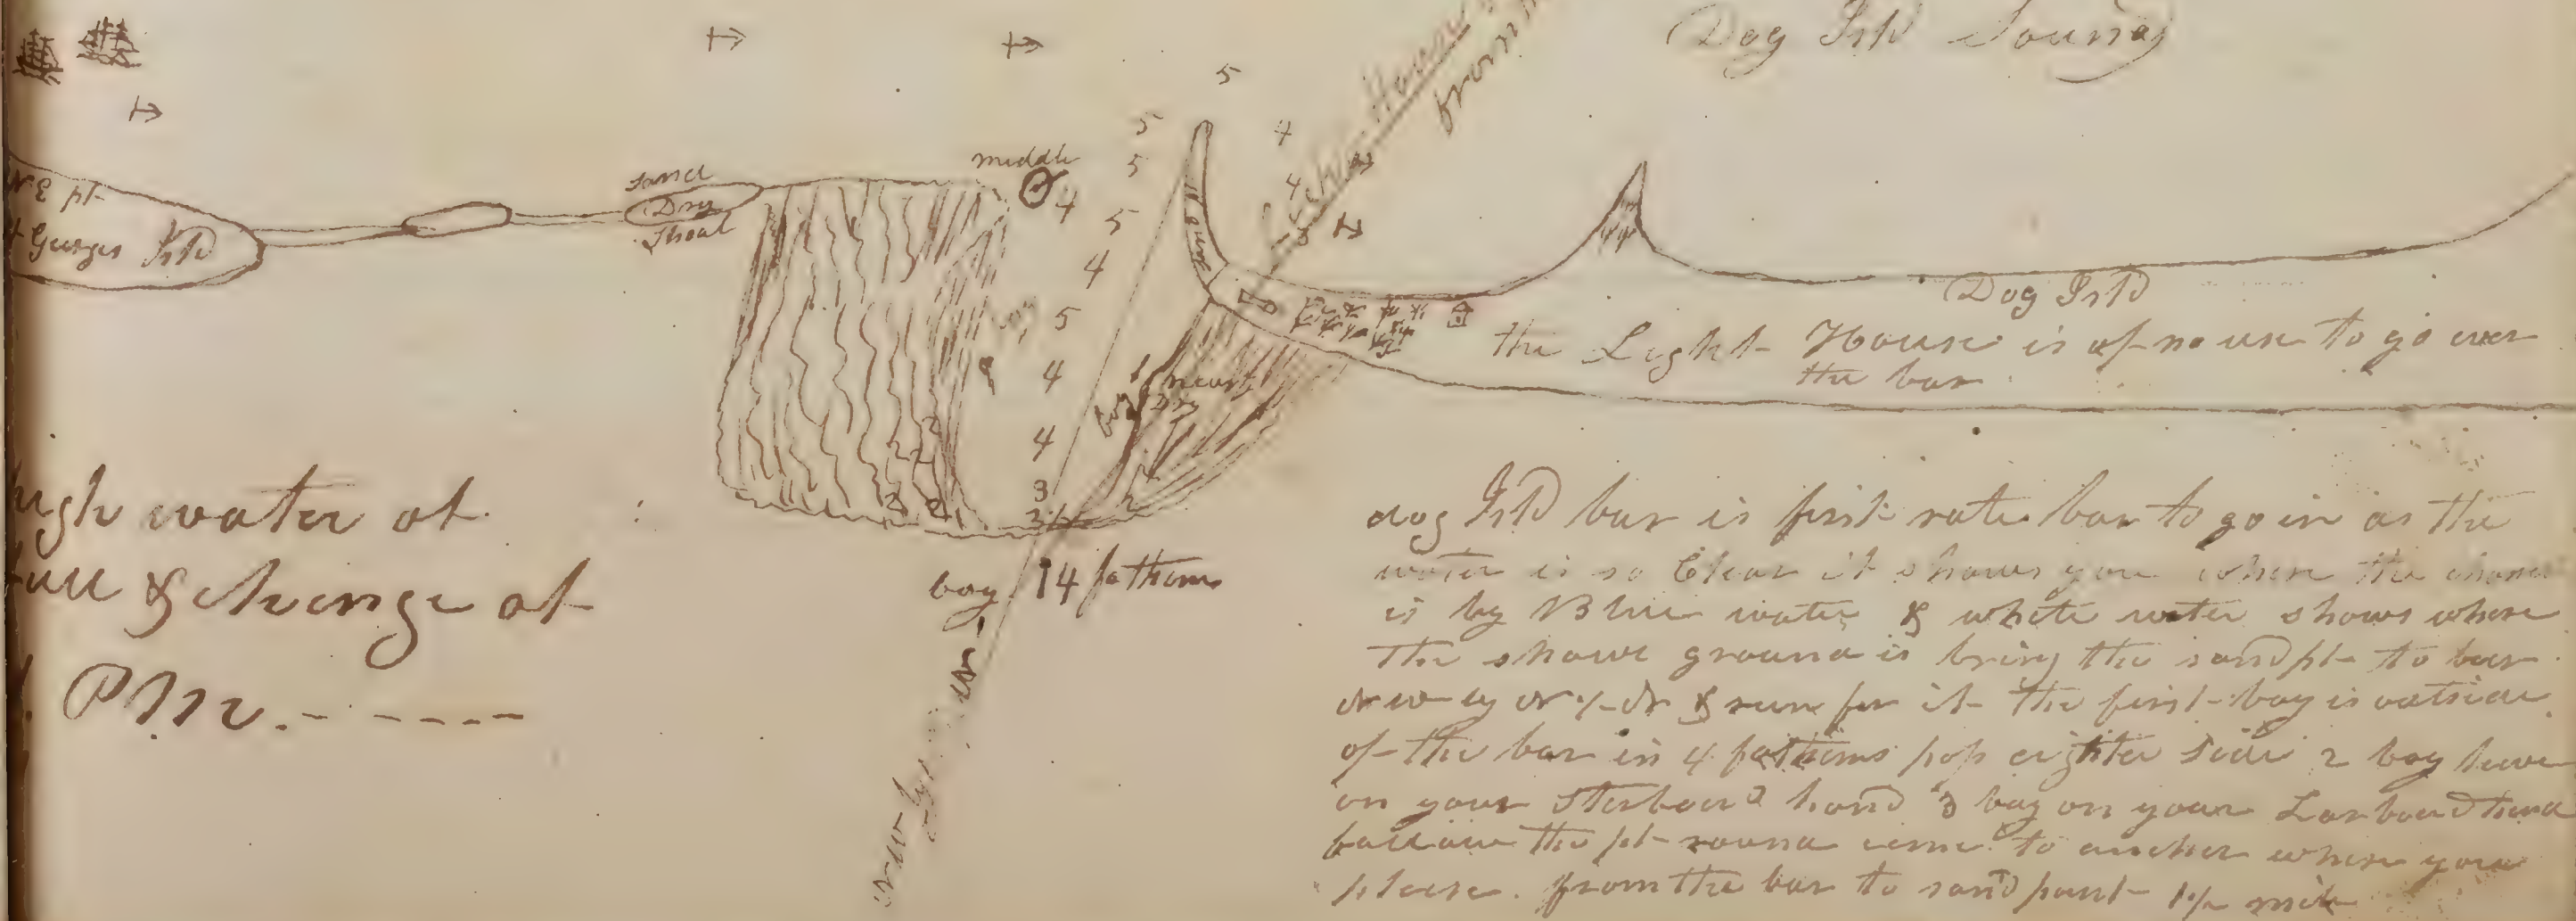 Dog Isld Sound
House
from
5
5
4
5
middle
4
5
4
4
5
4
4
3
3
Sand
Dry
Shoal
NE pt
Georges Isld
Dog Isld
the Light House is of no use to go over
the bar
nearly
Dry
2
2
2
2
2
boy 1 4 fathoms
N W by N
high water at
full & change at
PM. - - - - -
dog Isld bar is first rate bar to go in as the
water is so Clear it shows you where the chanel
is by Blue water & white water shows where
The showl ground is bring the sand pt to bear
N W by N & run for it the first boy is outside
of the bar in 4 fathoms pass eighter side 2 boy leave
on your Starboard hand 3 boy on your Larboard hand
follow the pt round come to ancher where you
please. from the bar to sand point 1 1/2 mile